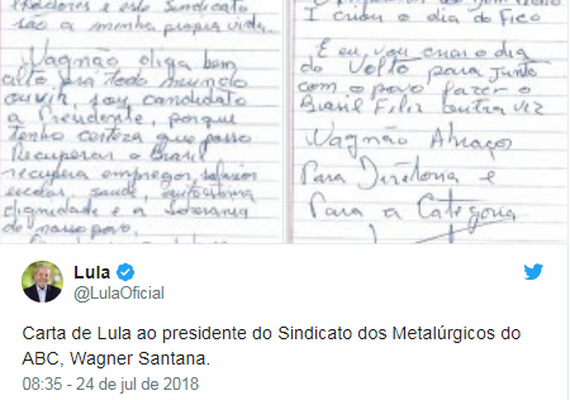 e este Sindicato
são a minha propria vida.
Wagnão diga bem
alto pra todo mundo
ouvir, sou candidato
a Presidente, porque
tenho certeza que posso
Recuperar o Brasil
recupera empregos, salarios
escolas, saude, autoestima
dignidade e a soberania
do nosso povo.
I criou o dia do Fico
E eu, vou criar o dia
do Volto para junto
com o povo fazer o
Brasil Feliz outra vez
Wagnão Abraços
Para Diretoria e
Para a Categoria
Lula
@LulaOficial
Carta de Lula ao presidente do Sindicato dos Metalúrgicos do
ABC, Wagner Santana.
08:35 - 24 de jul de 2018